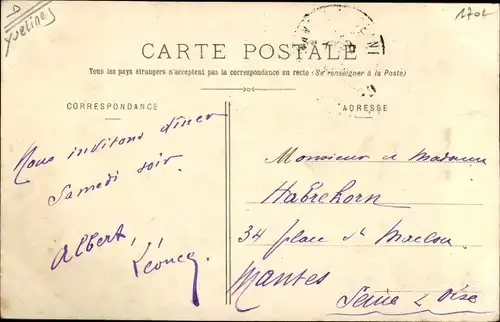 D
Yvelines
1702
CARTE POSTALE
Tous les pays étrangers n'acceptent pas la correspondance au recto (Se renseigner à la Poste)
CORRESPONDANCE
ADRESSE
Nous invitons dîner
Samedi soir
Albert,
Monsieur & Madame
Habrekorn
34 place St Maclou
Mantes
Seine & Oise